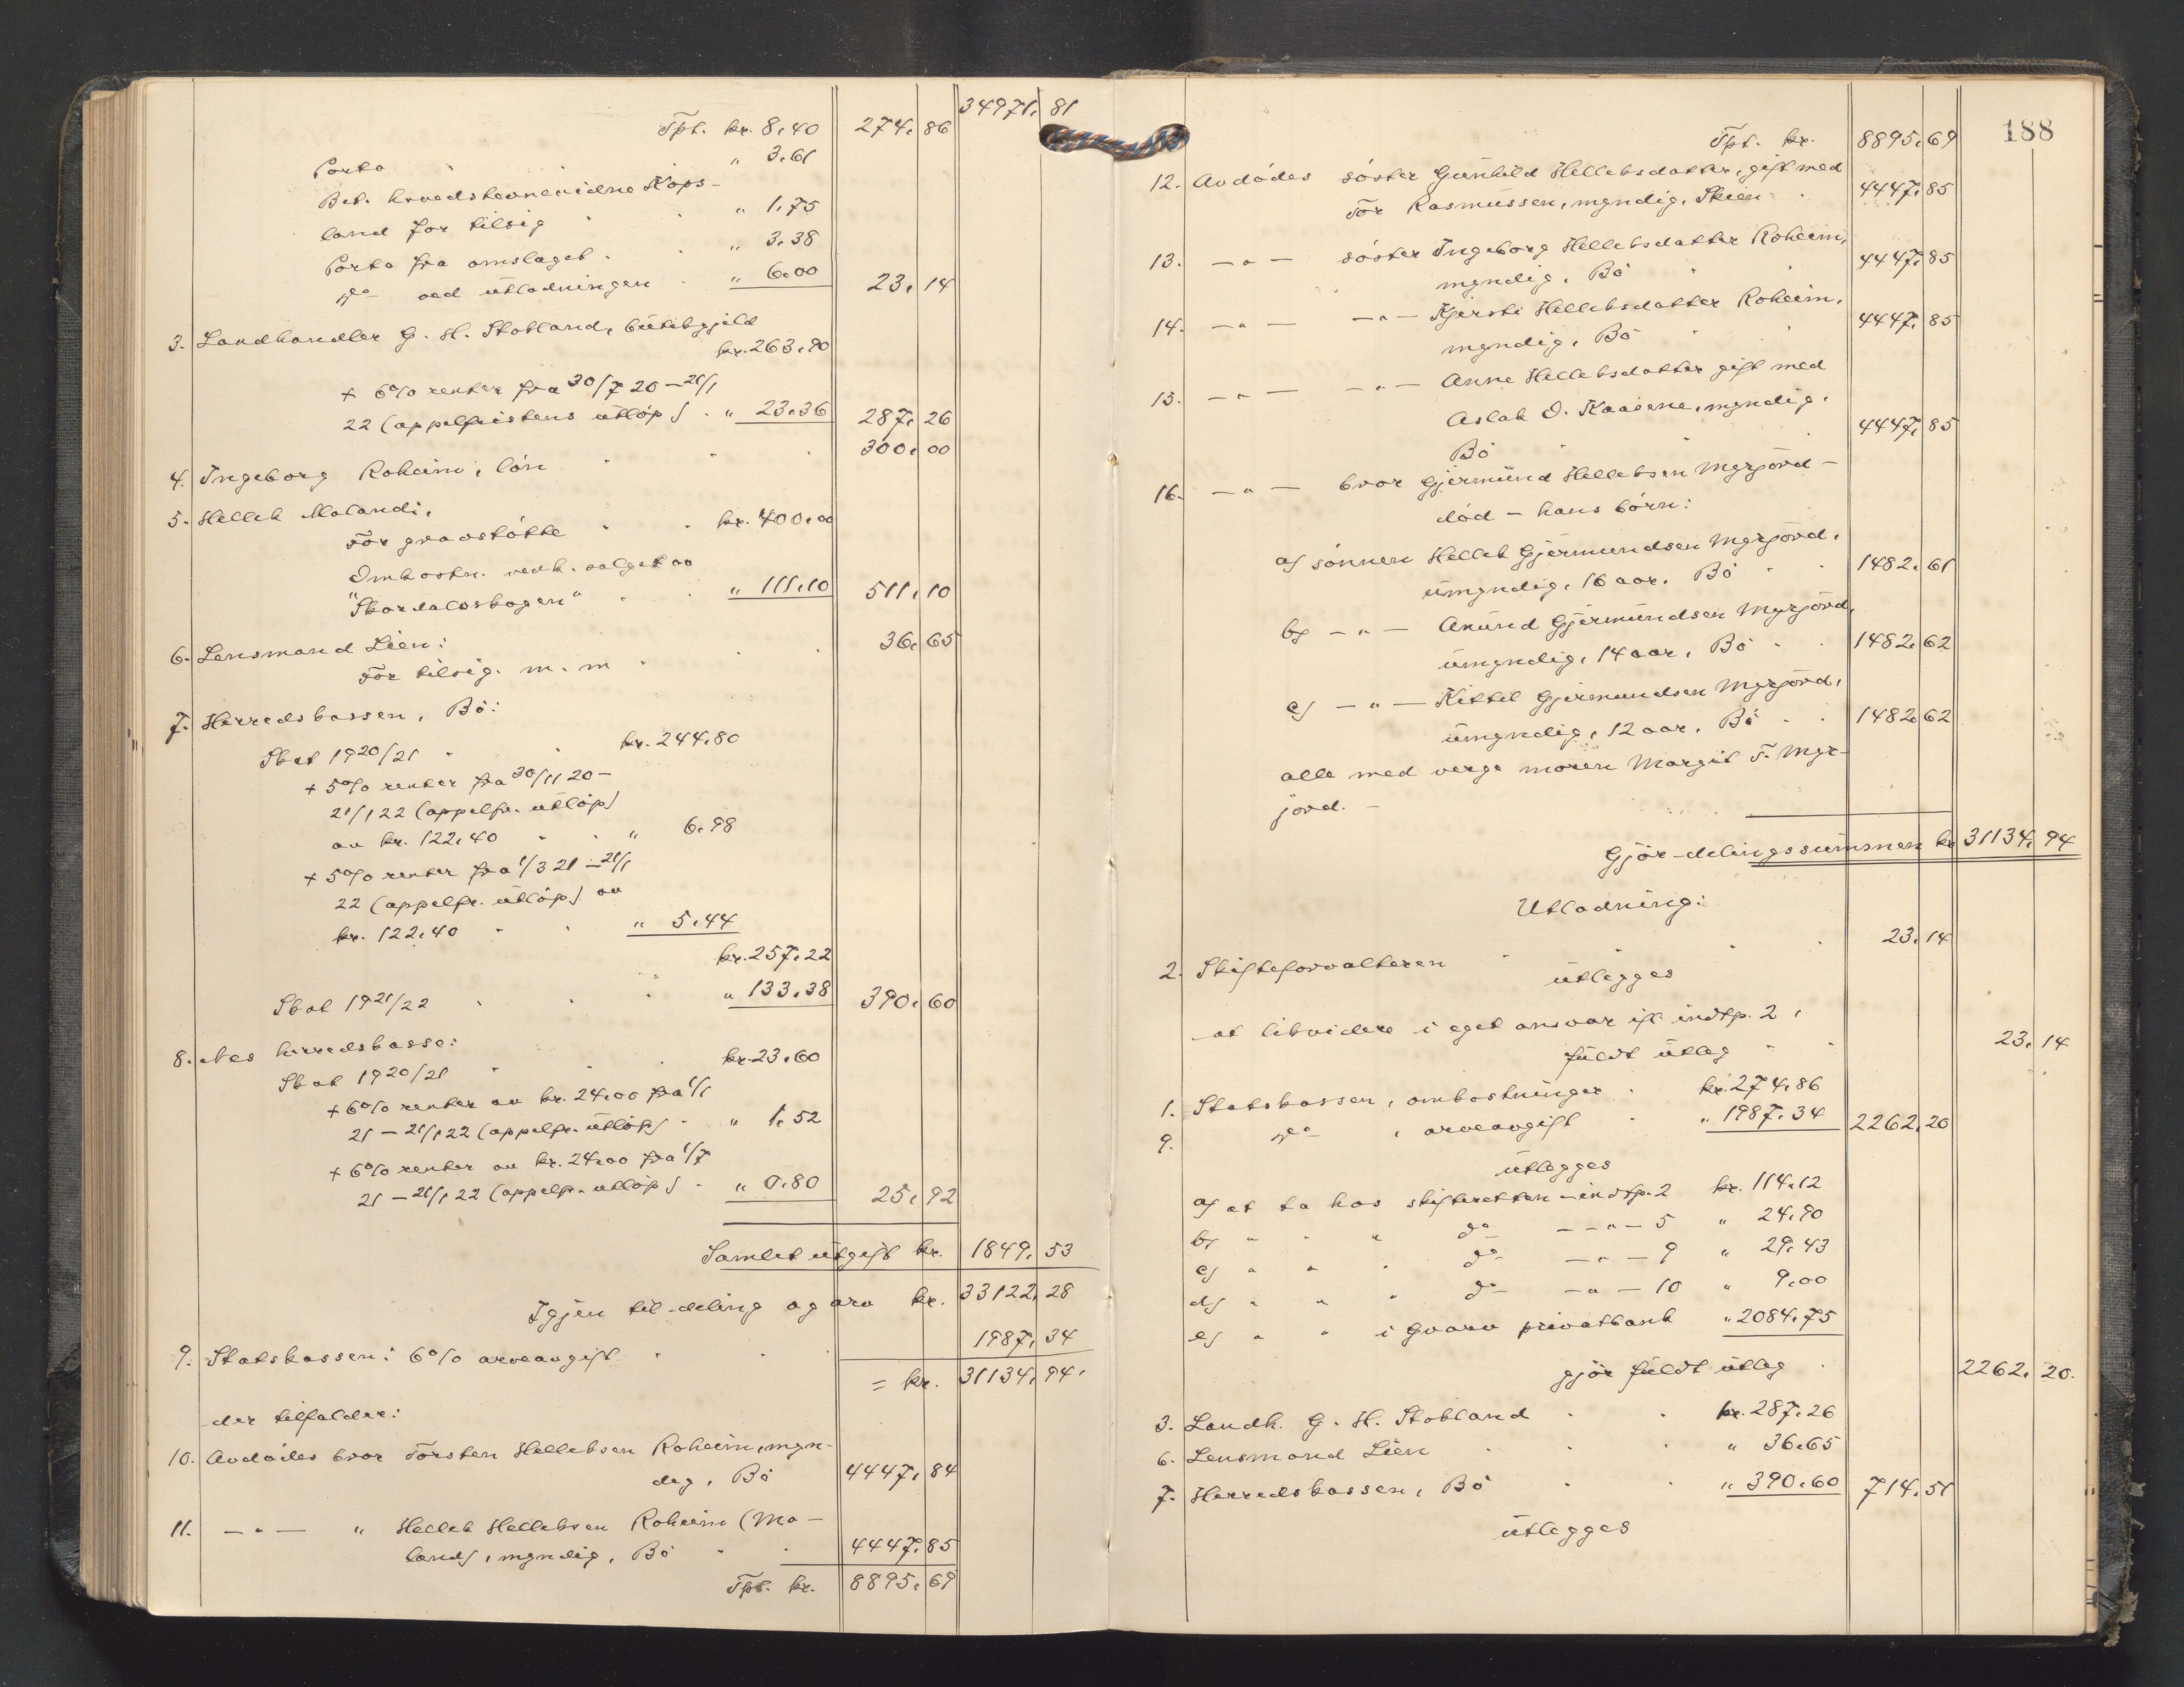 34971. 81
Tpt. kr. 8.40 274. 86
Porto " 3.61
Bet. hovedstevnevidne Kops-
land for tilsig " 1.75
Porto fra omslaget " 3.38
do ved utlodningen " 6.00 23. 14
3. Landhandler G. H. Stokland, butikgjeld
kr. 263.90
+ 6% renter fra 30/7 20 - 21/1
22 (appelfristens utløp) " 23.36 287. 26
4. Ingeborg Roheim, løn 300. 00
5. Hellek Malandi,
For gravstøtte kr. 400.00
Omkostn. vedk. salget av
"Skordalsskogen" " 111.10 511. 10
6. Lensmand Lien:
For tilsig. m. m 36. 65
7. Herredskassen, Bø:
Skat 1920/21 kr. 244.80
+ 5% renter fra 30/11 20 -
21/1 22 (appelfr. utløp)
av kr. 122.40 " 6.98
+ 5% renter fra 1/3 21 - 21/1
22 (appelfr. utløp) av
kr. 122.40 " 5.44
kr. 257.22
Skat 1921/22 " 133.38 390. 60
8. Nes herredskasse:
Skat 1920/21 kr. 23.60
+ 6% renter av kr. 24.00 fra 1/1
21 - 21/1 22 (appelfr. utløp) " 1.52
+ 6% renter av kr. 24.00 fra 1/7
21 - 21/1 22 (appelfr. utløp) " 0.80 25. 92
Samlet utgift kr. 1849. 53
Igjen til deling og arv kr. 33122. 28
9. Statskassen: 6% arveavgift 1987. 34
= kr. 31134. 94.
der tilfalder:
10. Avdødes bror Torsten Helleksen Roheim, myn-
dig, Bø 4447. 84
11. - " - " Hellek Helleksen Roheim (Ma-
land), myndig, Bø 4447. 85
Tpt. kr. 8895. 69
188
Tpt. kr. 8895. 69
12. Avdødes søster Gunhild Helleksdatter, gift med
Tor Rasmussen, myndig, Skien 4447. 85
13. - " - søster Ingeborg Helleksdatter Roheim,
myndig, Bø 4447. 85
14. - " - - " - Kjersti Helleksdatter Roheim,
myndig, Bø 4447. 85
15. - " - - " - Anne Helleksdatter gift med
Aslak O. Kaasene, myndig,
Bø 4447. 85
16. - " - bror Gjermund Helleksen Myrjord -
død - hans børn:
a) sønnen Hellek Gjermundsen Myrjord,
umyndig, 16 aar, Bø 1482. 61
b) - " - Anund Gjermundsen Myrjord,
umyndig, 14 aar, Bø 1482. 62
c) - " - Kittil Gjermundsen Myrjord,
umyndig, 12 aar, Bø 1482. 62
alle med verge moren Margit T. Myr-
jord. -
Gjør delingssummen kr 31134. 94
Utlodning:
2. Skifteforvalteren 23. 14
utlegges
at likvidere i eget ansvar ift indtp. 2,
fuldt utlæg 23. 14
1. Statskassen, omkostninger kr. 274.86
9. do , arveavgift " 1987.34 2262. 20
utlegges
a) at ta hos skifteretten - indtp. 2 kr. 114.12
b) " " " do - " - 5 " 24.90
c) " " " do - " - 9 " 29.43
d) " " " do - " - 10 " 9.00
e) " " i Gvarv privatbank " 2084.75
gjør fuldt utlæg 2262. 20.
3. Landh. G. H. Stokland kr. 287.26
6. Lensmand Lien " 36.65
7. Herredskassen, Bø " 390.60 714. 51
utlegges